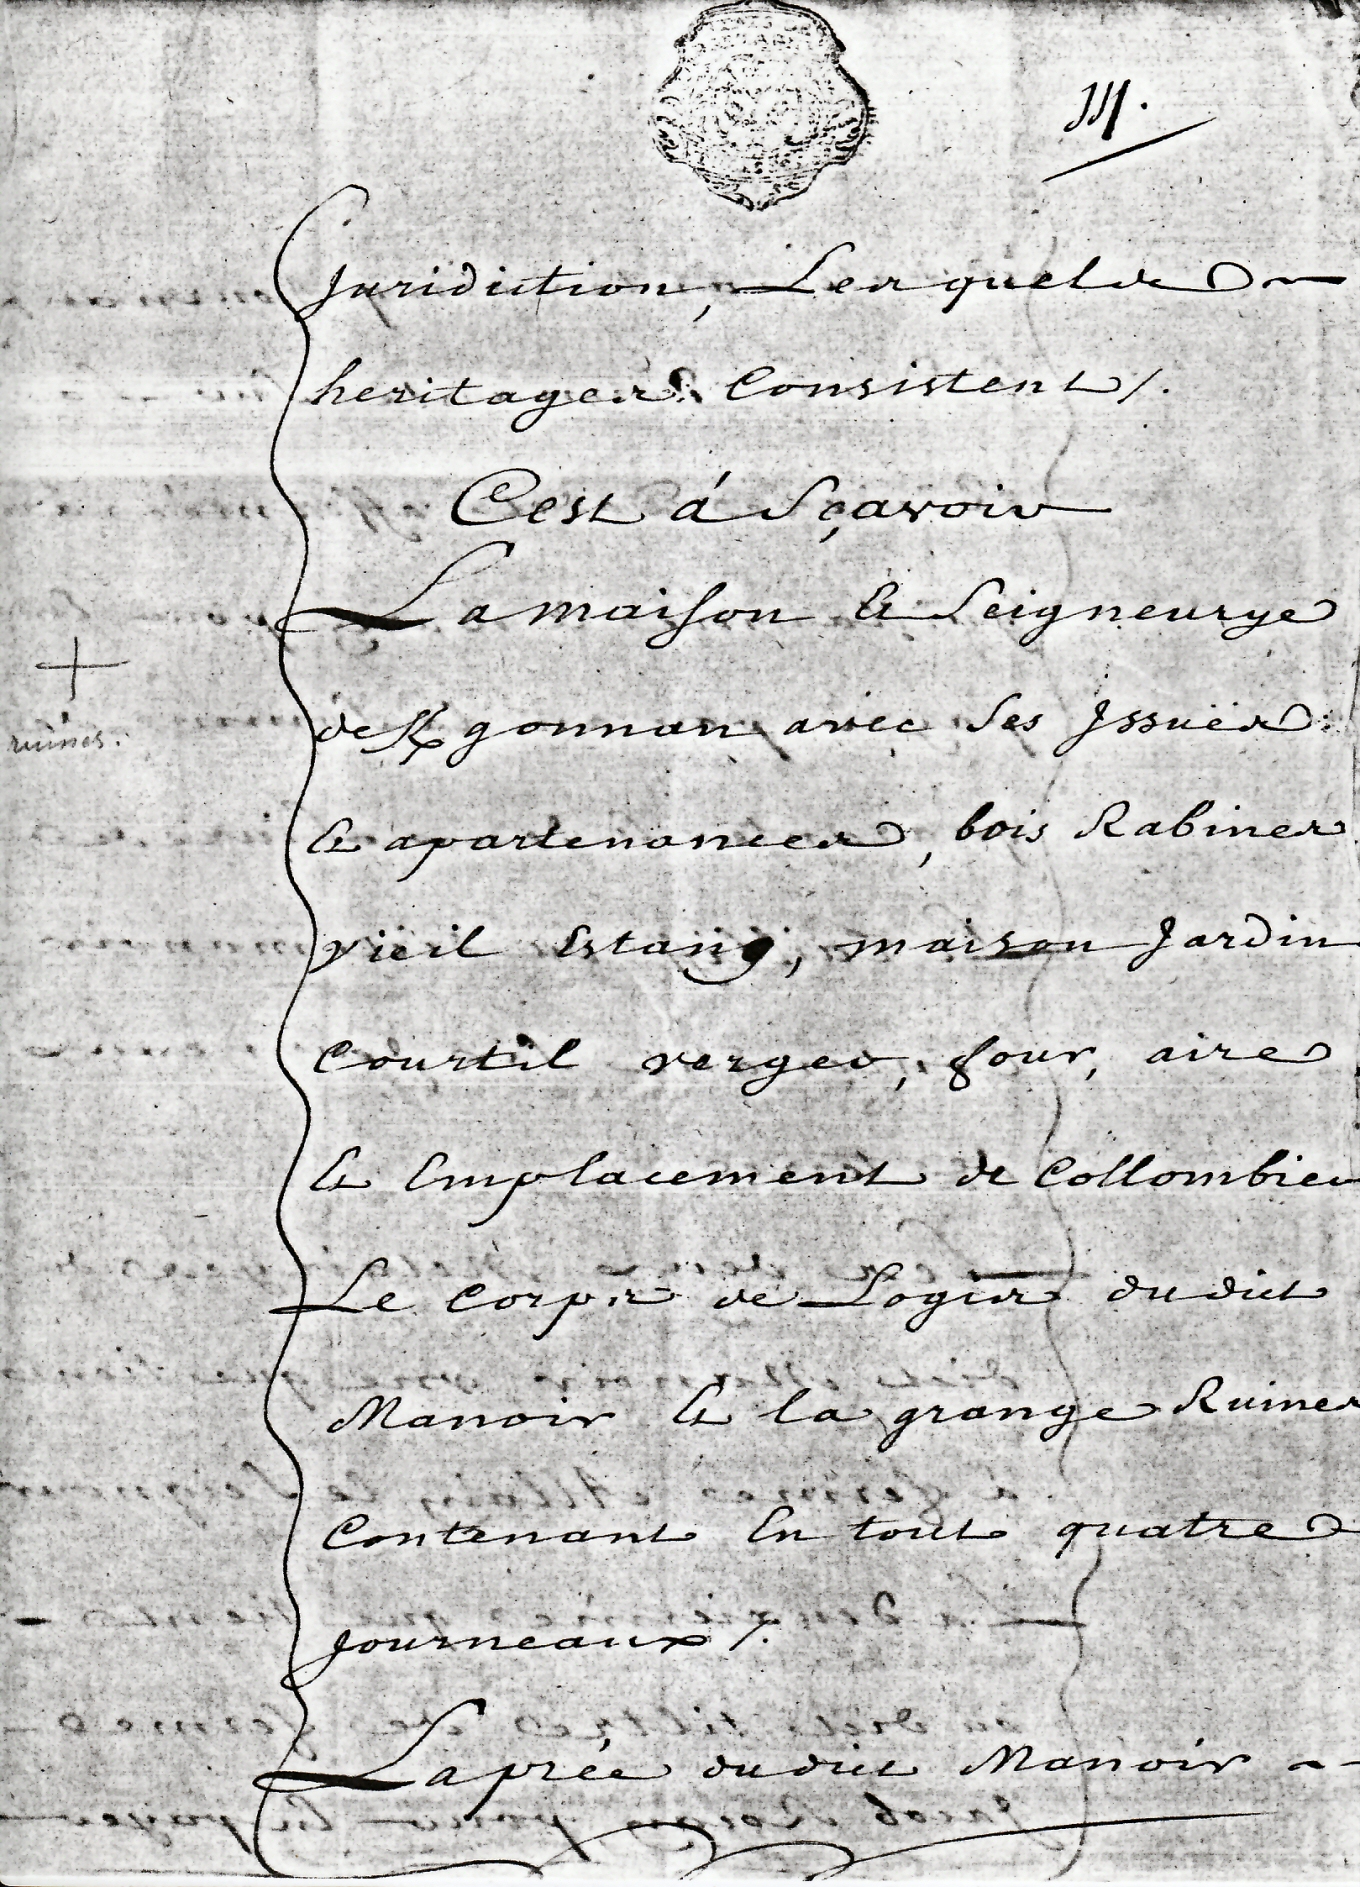 III.
Juridiction, Lesquels
heritages Consistent /.
C'est á Sçavoir
La maison Et Seigneurye
de K/gonnan avec ses Jssues
Et apartenances, bois Rabines
vieil Estang, maison Jardin
Courtil verger, four, aire
Et Emplacement de Collombier
Le Corps de Logis dudict
Manoir Et la grange Ruines
Contenant En tout quatre
Journeaux /.
La prée dudict Manoir
+
ruines.